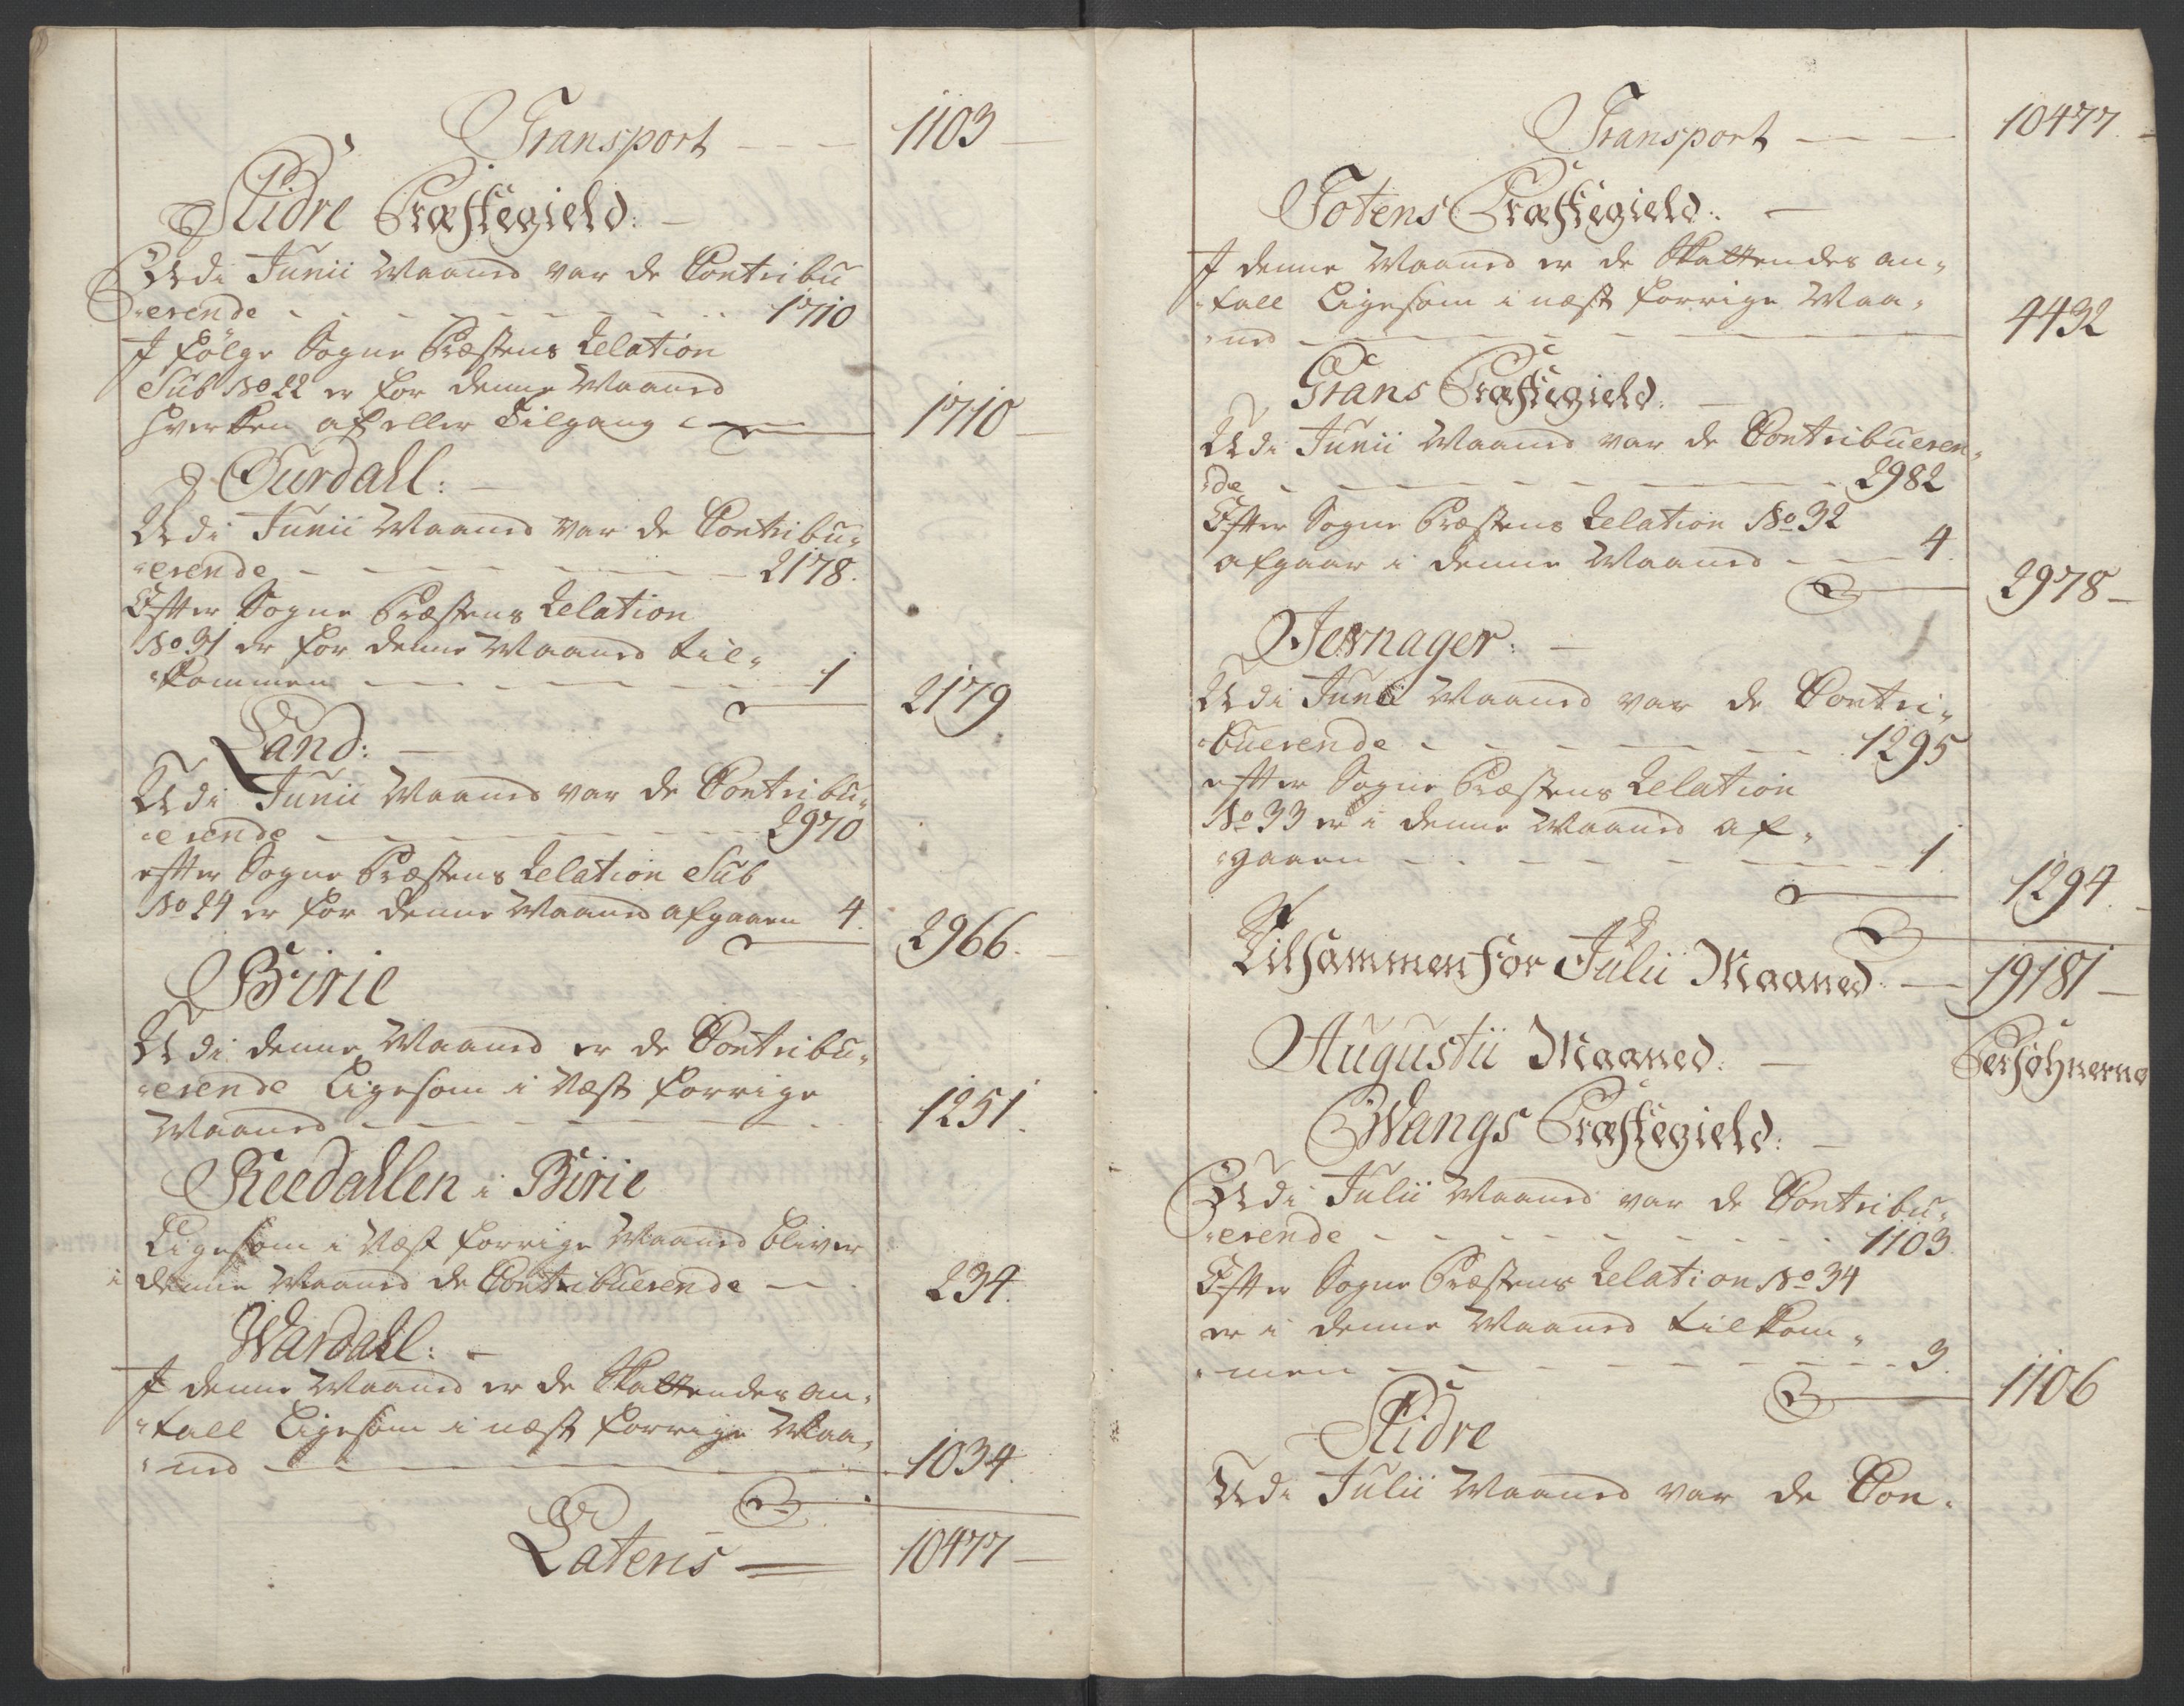 Transport - - - 1103 -
Slidre Præstegield: -
Udi Junii Maaned var de Contribu
"erende - - - - - - - - 1710
I følge Sogne Præstens Relation
Sub No 22 er for denne Maaned
hverken af eller Tilgang 1710 -
Ourdall: -
Udi Junii Maaned var de Contribu„
"erende - - - - - - - 2178.
Efter Sogne Præstens Relation
No 31 er for denne Maaned til„
"kommen - - - - - - - 1
2179
Land: -
Udi Junii Maaned var de Contribu„
"erende - - - - - - - 2970
efter Sogne Præstens Relation Sub
No 24 er for denne Maaned afgaaen 4.
2966. -
Birie
Udi denne Maaned er de Contribu„
"erende Ligesom i Næst forrige
Maaned - - - - - - - 1251.
Reedallen i Birie
Ligesom i Næst forrige Maaned bliver
i denne Maaned de Contribuerende - - 234.
Wardall: -
I denne Maaned er de Skattendes an„
"tall Ligesom i næst forrige Maa„
"ned - - - - - - - 1034.
Lateris - 10477 -
Transport - - - 10477. -
Totens Præstegield: -
I denne Maaned er de Skattendes an„
"tall Ligesom i næst forrige Maa„
"ned - - - - - - - 4432
Grans Præstegield: -
Udi Junii Maaned var de Contribueren„
"de - - - - - - - 2982
Efter Sogne Præstens Relation No 32
afgaar i denne Maaned - - - 4.
2978 -
Jevnager: -
Udi Junii Maaned var de Contri„
"buerende - - - - - - - 1295
efter Sogne Præstens Relation
No 33 er i denne Maaned af„
"gaaen - - - - - - - 1.
1294. -
Tilsammen for Julii Maaned - 19181 -
Augustii Maaned: - Persohnerne
Wangs Præstegield: -
Udi Julii Maaned var de Contribu„
"erende - - - - - - - 1103.
Efter Sogne Præstens Relation No 34
er i denne Maaned tilkom„
"men - - - - - - - 3.
1106
Slidre
Udi Julii Maaned var de Con„